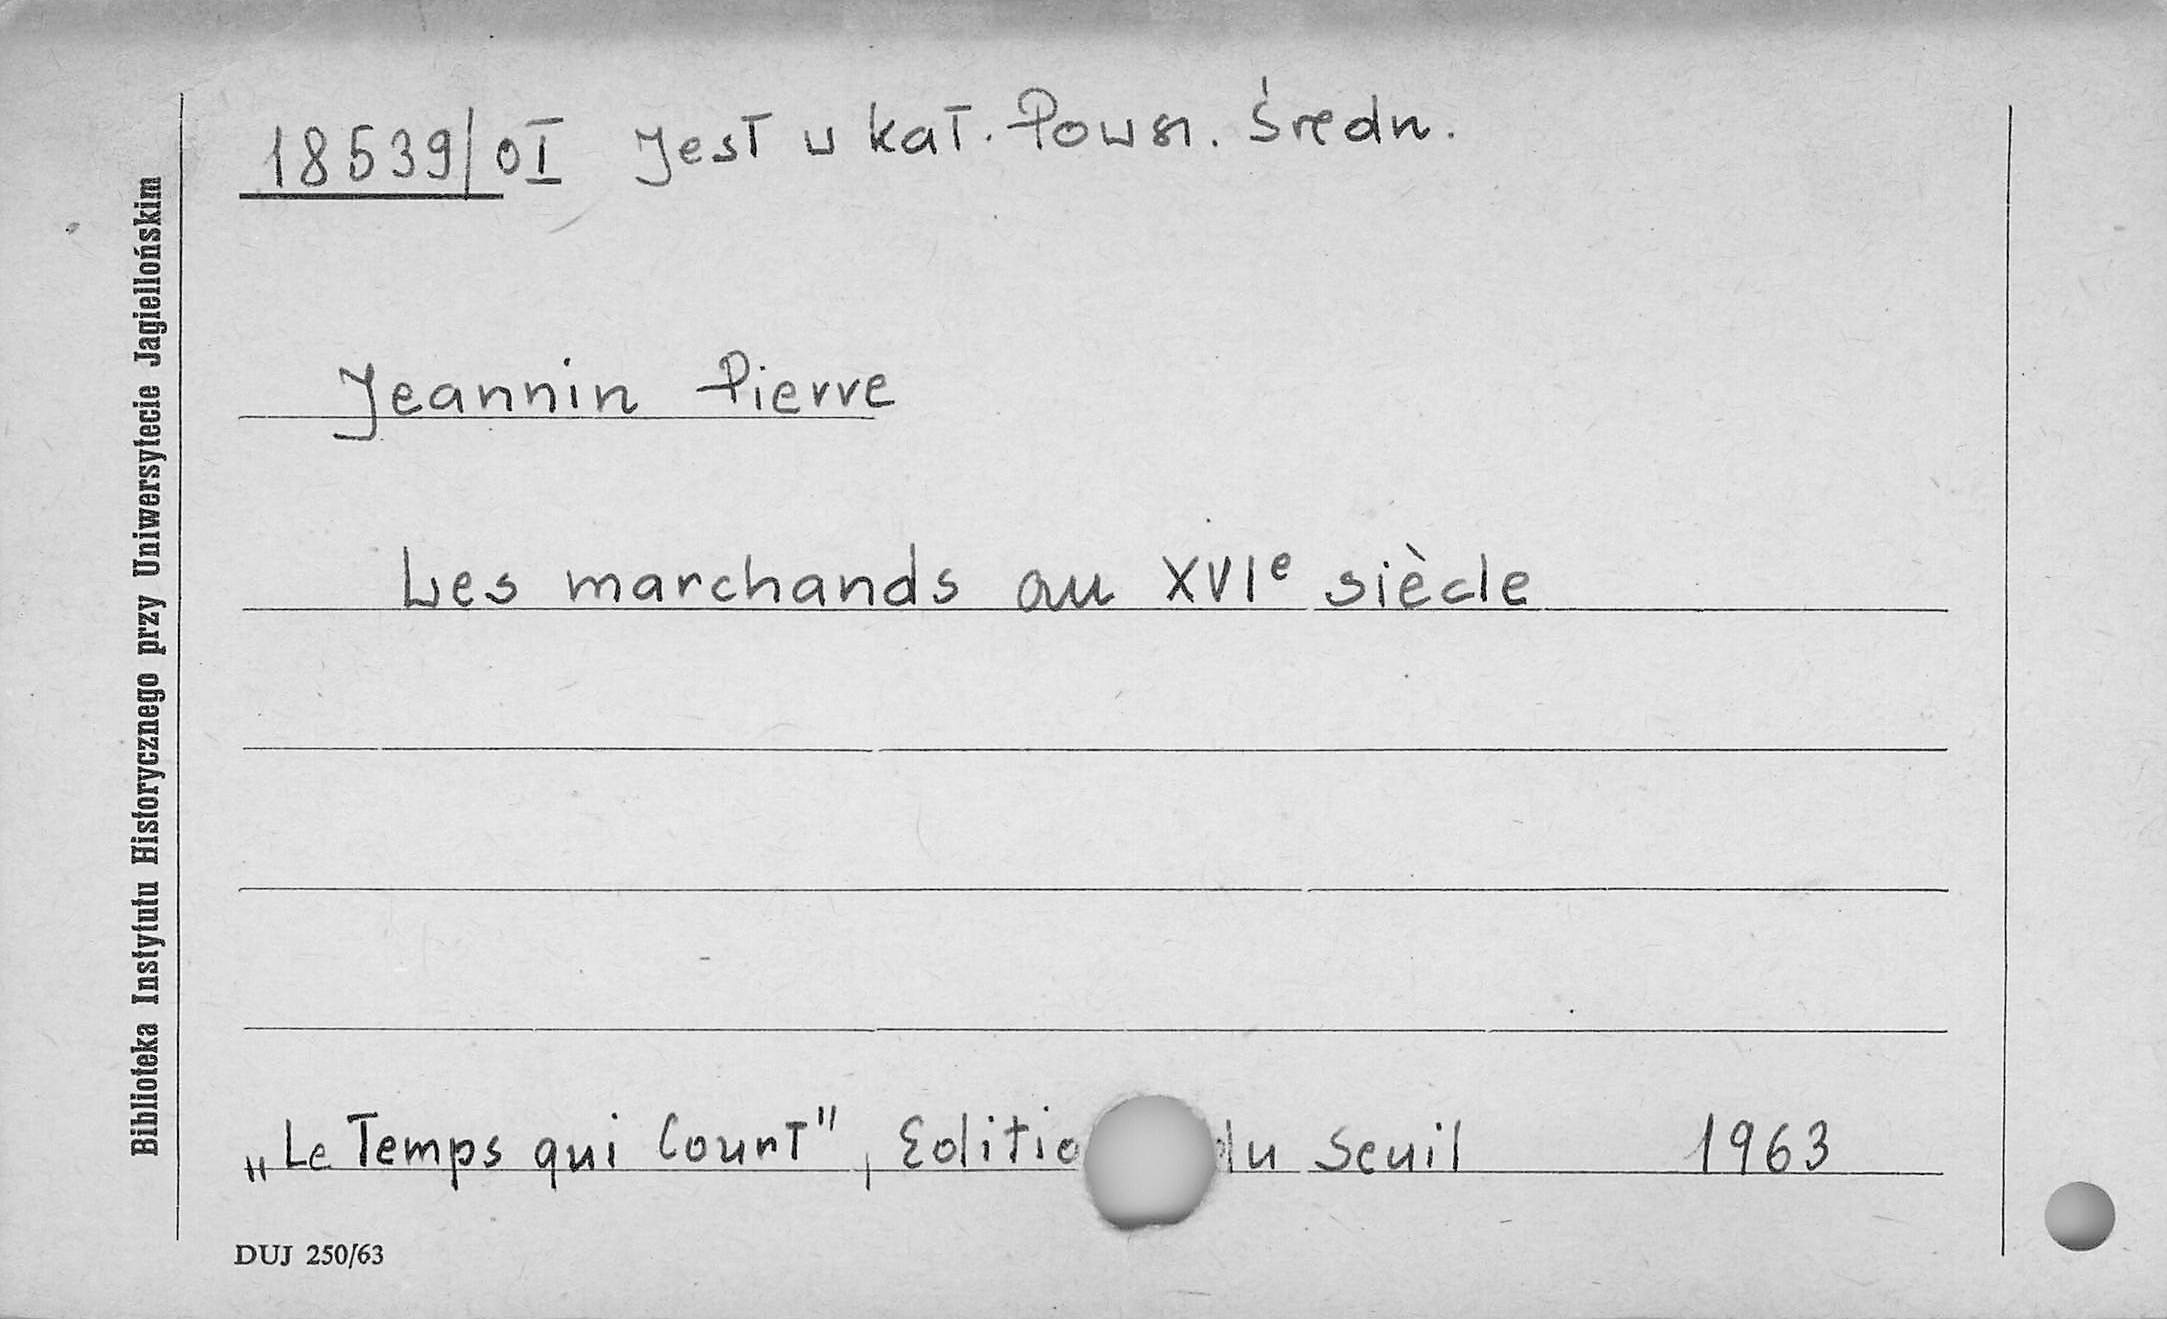 18539/OI Jest w kat. Powsz. Średn.
Jeannin Pierre
Les marchands au XVIe siècle
„Le Temps qui Court", Editio du Seuil 1963
DUJ 250/63
Biblioteka Instytutu Historycznego przy Uniwersytecie Jagiellońskim